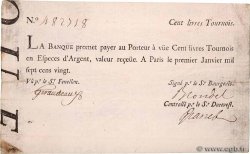 N.º 482718 Cent livres Tournois.
LA BANQUE promet payer au Porteur à vûe Cent livres Tournois
en Especes d'Argent, valeur reçeüe. A Paris le premier Janvier mil
sept cens vingt.
Vû p.r le S.r Fenellon. Signé p.r le S.r Bourgeois.
Giraudeau
Controllé p.r le S.r Durevest.
Granet